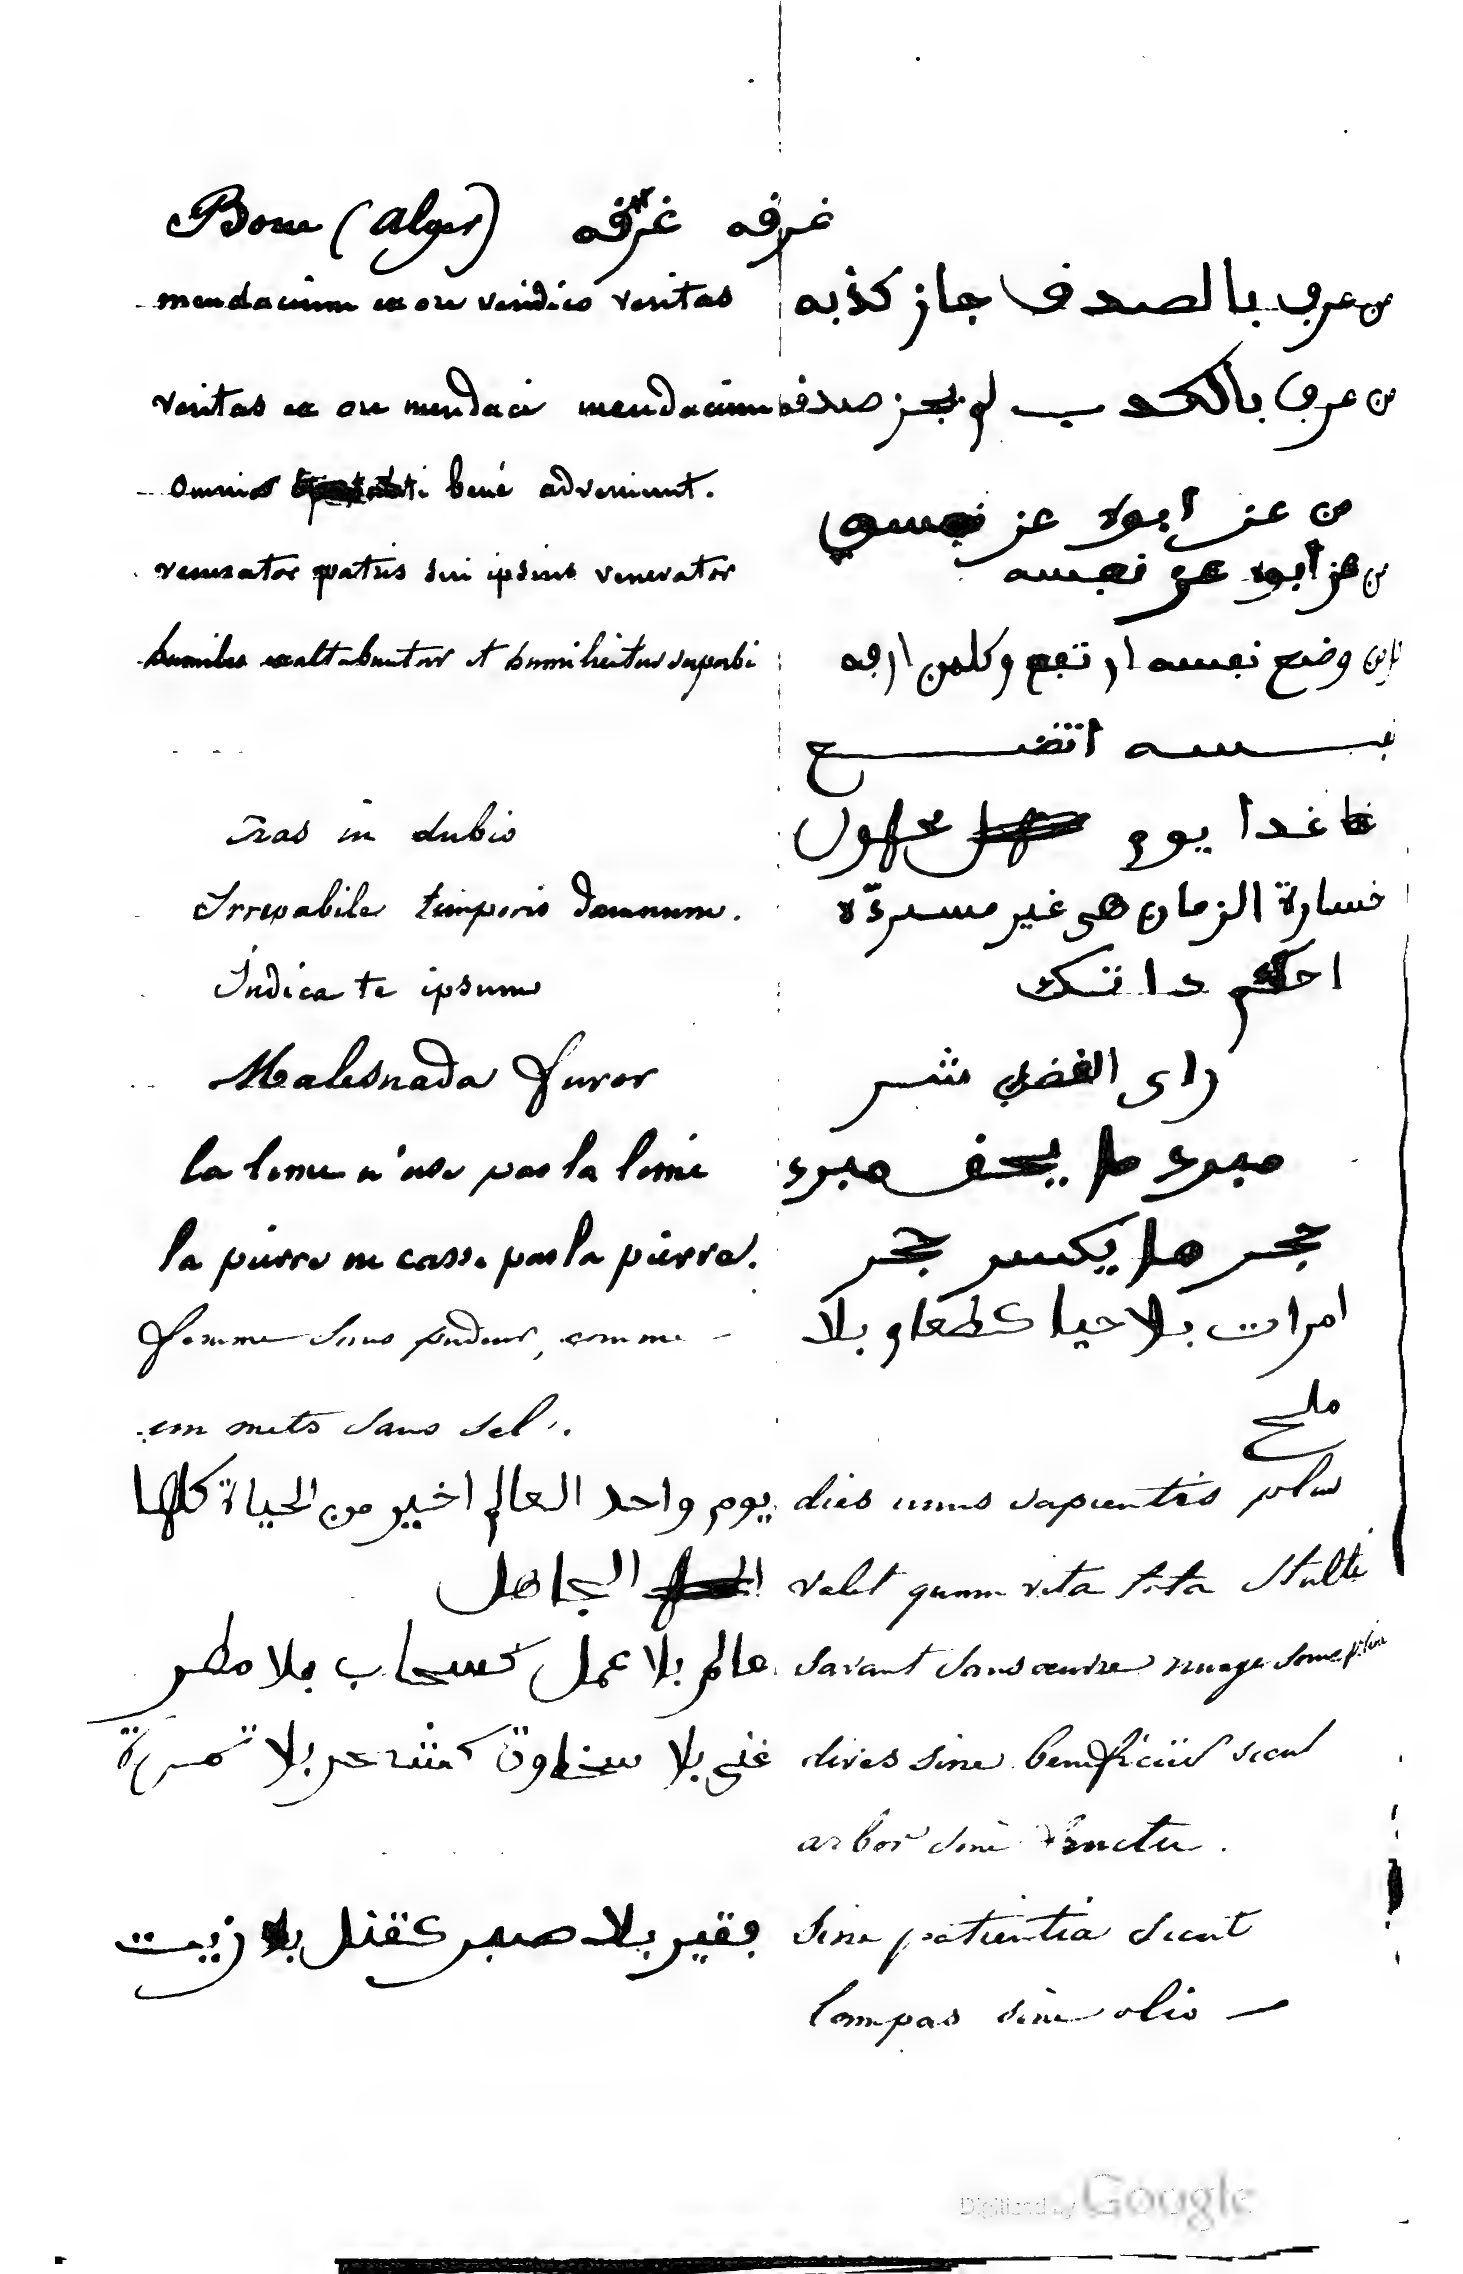 Bone (Alger) غرفه غرفه
mendacium ex ore veridico veritas من عرف بالصدف جاز كذبه
veritas ex ore mendaci mendacium من عرف بالكدب لم يجز صدفه
omnia bene adveniunt.
من عز ابوه عز
venerator patris sui ipsius venerator من عز أبوه عز نفسه
humiles exaltabuntur et humilientur superbi وضع نفسه ارتفع وكلمن ارفه
نفسه اتضع
Cras in dubio غدا يوم مجهول
Irrepabile temporis damnum. خسارة الزمان هى غير مسردّه
Judica te ipsum احكم داتك
Malesuada furor راى الغضب شر
la lime n'use pas la lime مبرد ما يحف مبرد
la pierre ne casse pas la pierre. حجر ما يكسر حجر
femme sans pudeur, comme امرات بلا حيا كطعام بلا
un mets sans sel. ملح
يوم واحد العالم اخير من الحياة كلها dies unus sapientis plus
الجاهل valet quam vita tota stulti
عالم بلا عمل كسحاب بلا مطر savant sans œuvre nuage sans pluie
غنى بلا سخاوة كشجر بلا تمرة dives sine beneficiis sicut
arbor sine fructu.
فقير بلا صبر كقنديل بلا زيت sine patientia sicut
lampas sine olio —
Digitized by Google